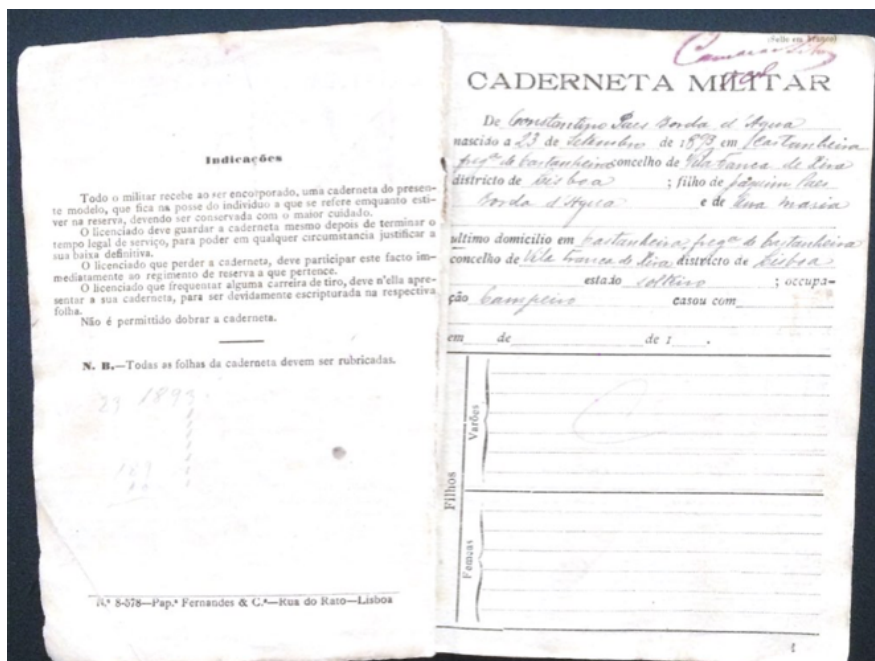 Indicações
Todo o militar recebe ao ser encorporado, uma caderneta do presen-
te modelo, que fica na posse do individuo a que se refere emquanto esti-
ver na reserva, devendo ser conservada com o maior cuidado.
O licenciado deve guardar a caderneta mesmo depois de terminar o
tempo legal de serviço, para poder em qualquer circumstancia justificar a
sua baixa definitiva.
O licenciado que perder a caderneta, deve participar este facto im-
mediatamente ao regimento de reserva a que pertence.
O licenciado que frequentar alguma carreira de tiro, deve n'ella apre-
sentar a sua caderneta, para ser devidamente escripturada na respectiva
folha.
Não é permittido dobrar a caderneta.
N. B.—Todas as folhas da caderneta devem ser rubricadas.
23 1893
N.º 8-578—Pap.ª Fernandes & C.ª—Rua do Rato—Lisboa
CADERNETA MILITAR
De Constantino Paes Borda d'Agua
nascido a 23 de Setembro de 1893 em Castanheira
freg.ª de Castanheira concelho de Vila Franca de Xira
districto de Lisboa ; filho de Joaquim Paes
Borda d'Agua e de Maria
ultimo domicilio em Castanheira, freg.ª de Castanheira
concelho de Vila Franca de Xira districto de Lisboa
estado solteiro ; occupa-
ção Campeiro casou com
em de de 1 .
Filhos
Varões
Femeas
1